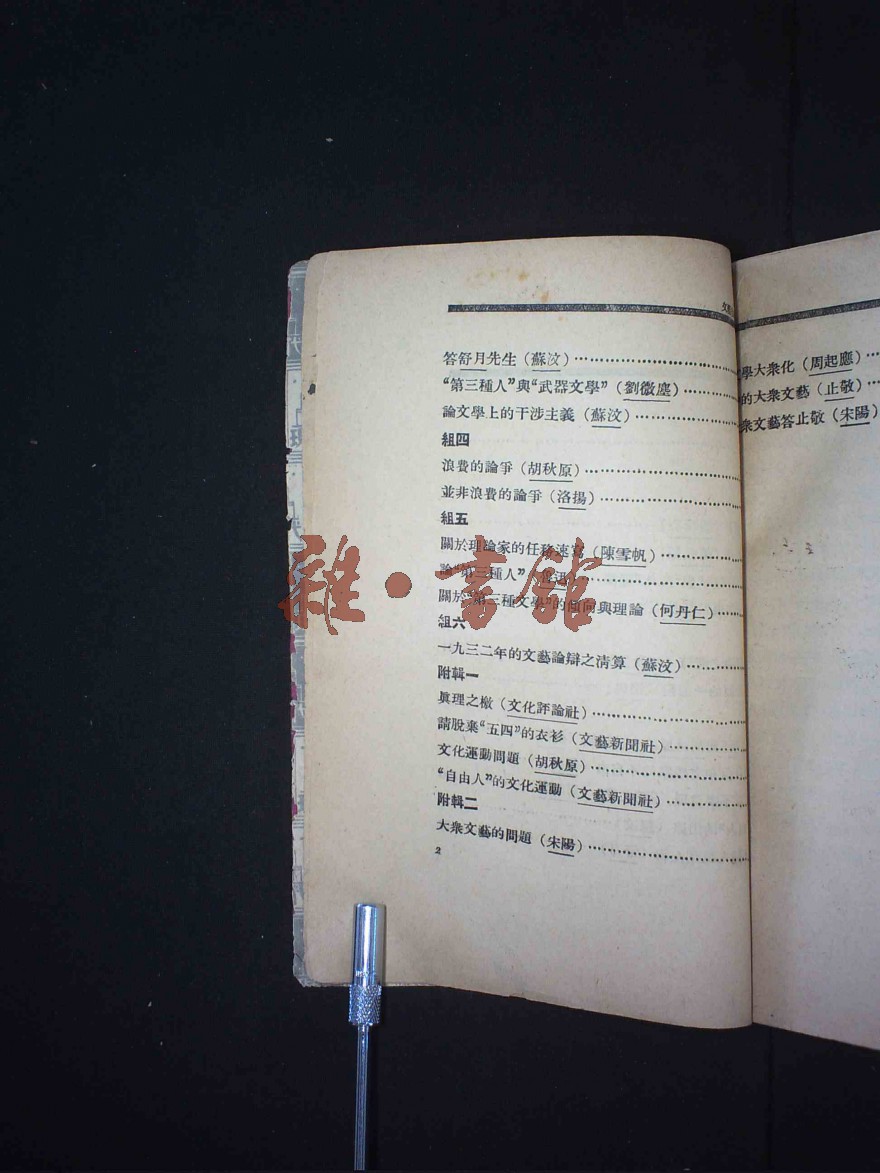 答舒月先生（蘇汶）
“第三種人”與“武器文學”（劉微塵）
論文學上的干涉主義（蘇汶）
組四
浪費的論爭（胡秋原）
並非浪費的論爭（洛揚）
組五
關於理論家的任務速寫（陳雪帆）
論“第三種人”
關於“第三種文學”的傾向與理論（何丹仁）
組六
一九三二年的文藝論辯之清算（蘇汶）
附輯一
眞理之檄（文化評論社）
請脫棄“五四”的衣衫（文藝新聞社）
文化運動問題（胡秋原）
“自由人”的文化運動（文藝新聞社）
附輯二
大衆文藝的問題（宋陽）
2
學大衆化（周起應）
的大衆文藝（止敬）
衆文藝答止敬（宋陽）
雜·書館